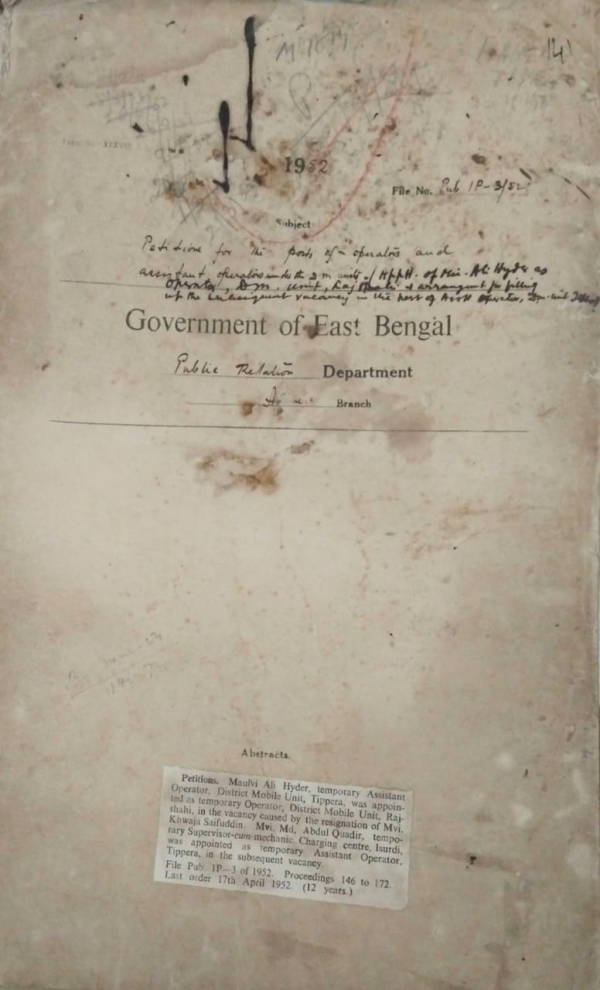 141
1952
File No. Pub 1P-3/52
Subject
Petitions for the posts of operators and
assistant operators under the D.M. units / Appt. of Mr. Ali Hyder as
Operator, D.M. Unit, Rajshahi & arrangement for filling
up the subsequent vacancy in the post of Asstt Operator, Dm. unit
Government of East Bengal
Public Relation Department
Branch
Abstracts.
Petitions. Maulvi Ali Hyder, temporary Assistant
Operator, District Mobile Unit, Tippera, was appoin-
ted as temporary Operator, District Mobile Unit, Raj-
shahi, in the vacancy caused by the resignation of Mvi.
Khwaja Saifuddin. Mvi. Md. Abdul Quadir, tempo-
rary Supervisor-cum-mechanic, Charging centre, Isurdi,
was appointed as temporary Assistant Operator,
Tippera, in the subsequent vacancy.
File Pub. 1P—3 of 1952. Proceedings 146 to 172.
Last order 17th April 1952. (12 years.)